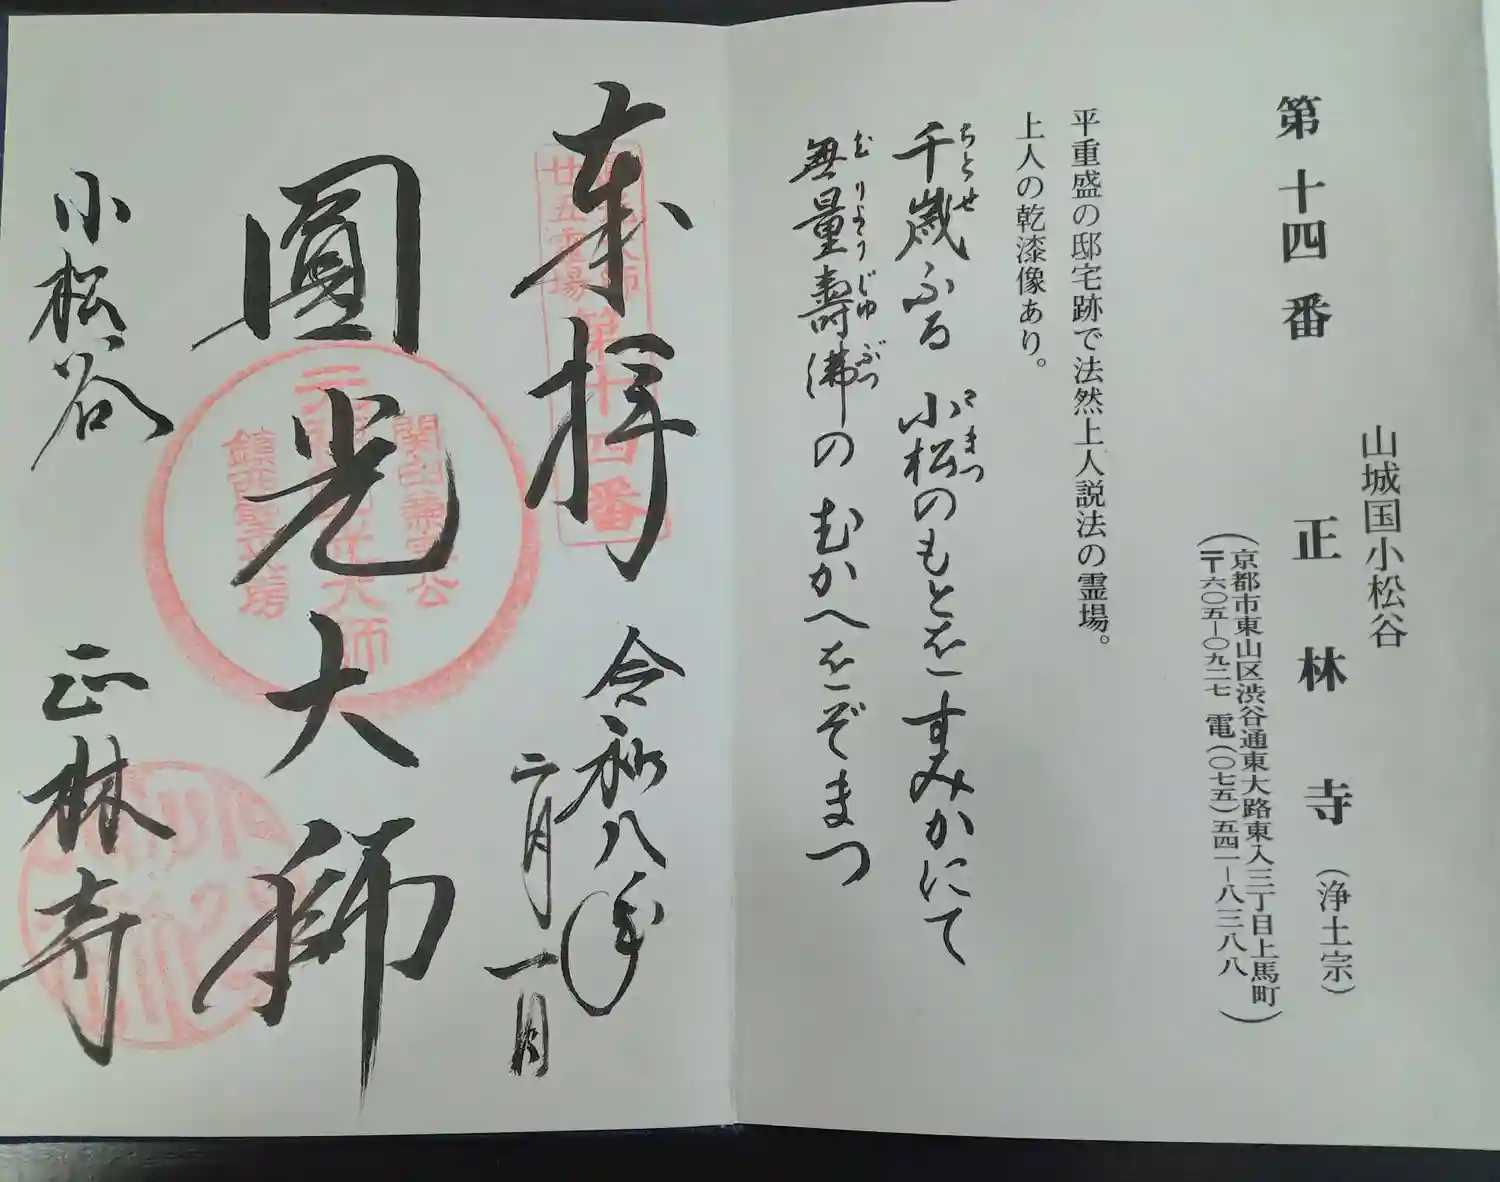 山城国小松谷
第十四番 正林寺(浄土宗)
(京都市東山区渋谷通東大路東入三丁目上馬町
〒六〇五―〇九二七 電(〇七五)五四一―八三八八)
平重盛の邸宅跡で法然上人説法の霊場。
上人の乾漆像あり。
千歳ふる 小松のもとをすみかにて
ちとせ こまつ
無量壽佛の むかへをぞまつ
むりょうじゅぶつ
奉拝 令和八年
二月一日
廿五霊場 第十四番
圓光大師
小松谷 正林寺